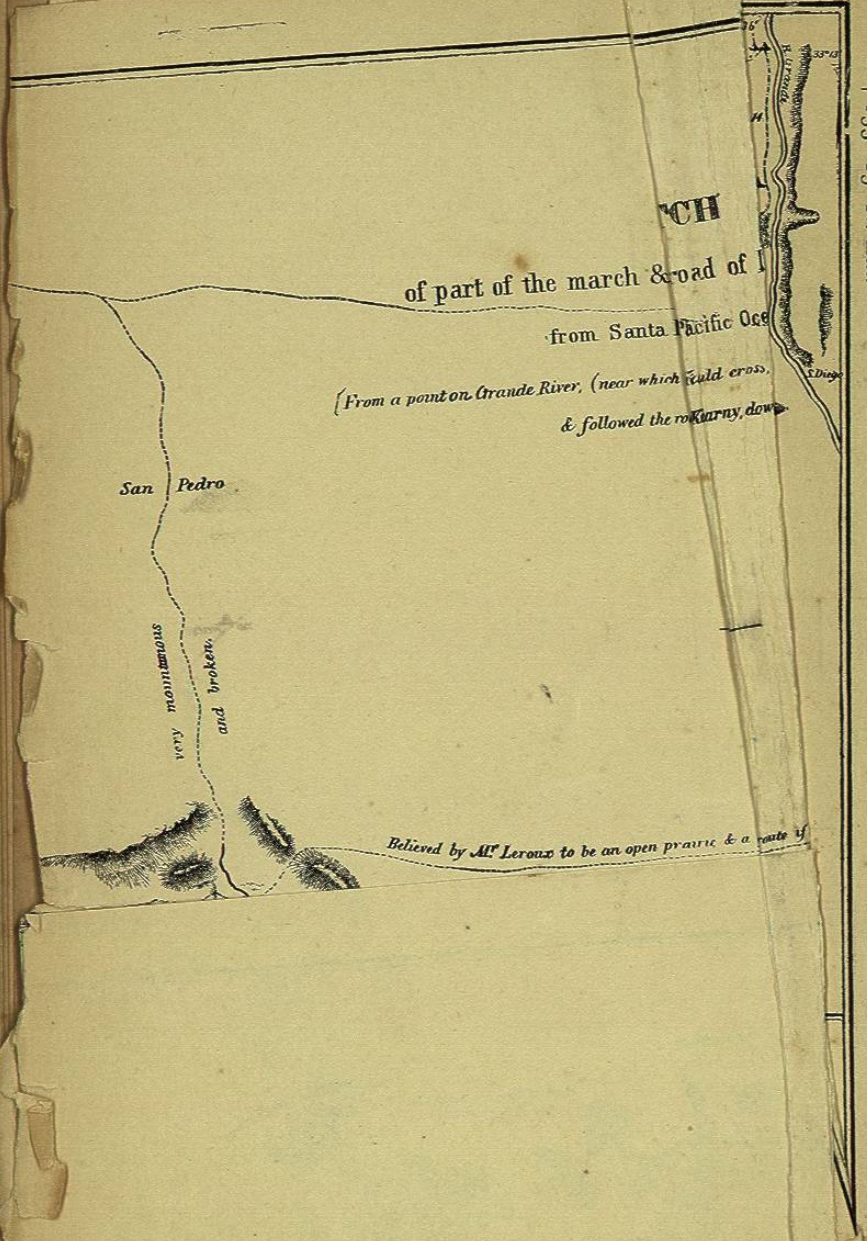 36
33°13'
R. Grande
H
CH
of part of the march & road of
from Santa Pacific Oce
S. Diego
[From a point on Grande River, (near which ould cross,
& followed the ro Kearny, dow
San Pedro
very mountainous
and broken.
Believed by Mr Leroux to be an open prairie & a route if